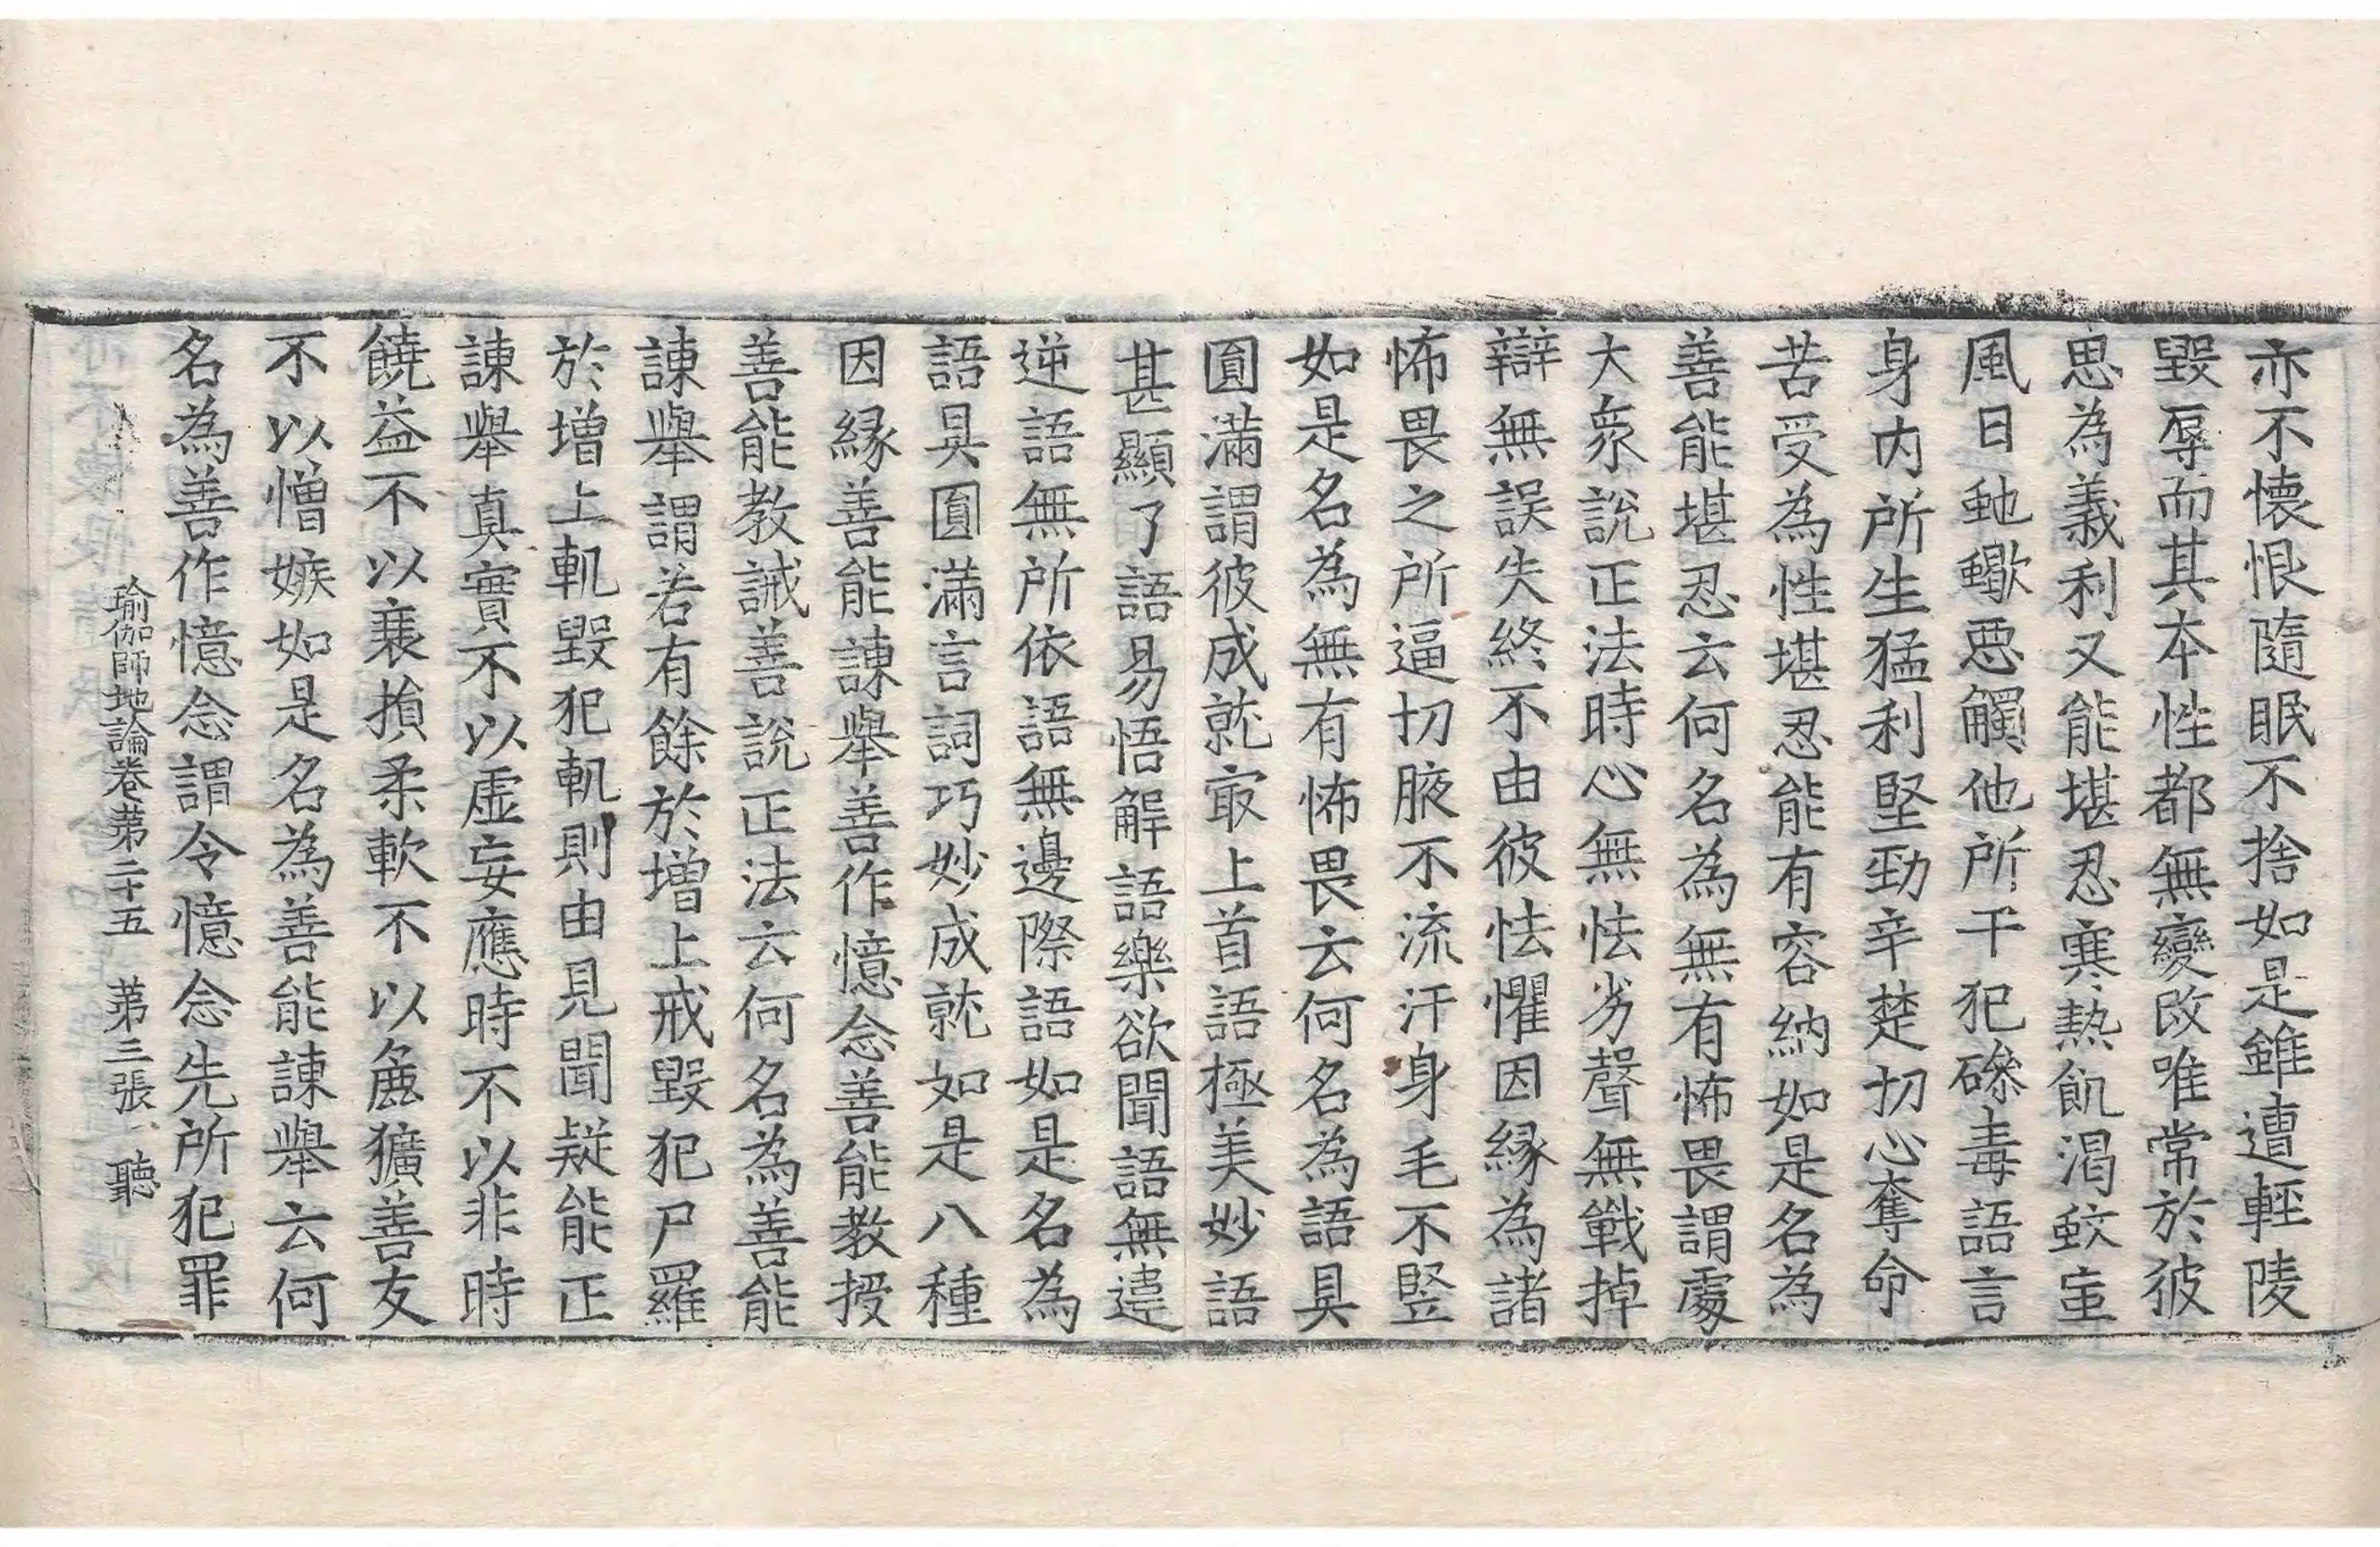 亦不懷恨隨眠不捨如是雖遭輕陵
毀辱而其本性都無變改唯常於彼
思為義利又能堪忍寒熱飢渴蚊䖟
風日虵蠍惡觸他所干犯磣毒語言
身內所生猛利堅勁辛楚切心奪命
苦受為性堪忍能有容納如是名為
善能堪忍云何名為無有怖畏謂處
大衆說正法時心無怯劣聲無戰掉
辯無誤失終不由彼怯懼因緣為諸
怖畏之所逼切腋不流汗身毛不竪
如是名為無有怖畏云何名為語具
圓滿謂彼成就㝡上首語極美妙語
甚顯了語易悟解語樂欲聞語無違
逆語無所依語無邊際語如是名為
語具圓滿言詞巧妙成就如是八種
因緣善能諫舉善作憶念善能教授
善能教誡善說正法云何名為善能
諫舉謂若有餘於增上戒毀犯尸羅
於增上軌毀犯軌則由見聞疑能正
諫舉真實不以虛妄應時不以非時
饒益不以衰損柔軟不以麁獷善友
不以憎嫉如是名為善能諫舉云何
名為善作憶念謂令憶念先所犯罪
瑜伽師地論卷苐二十五 苐三張 聽